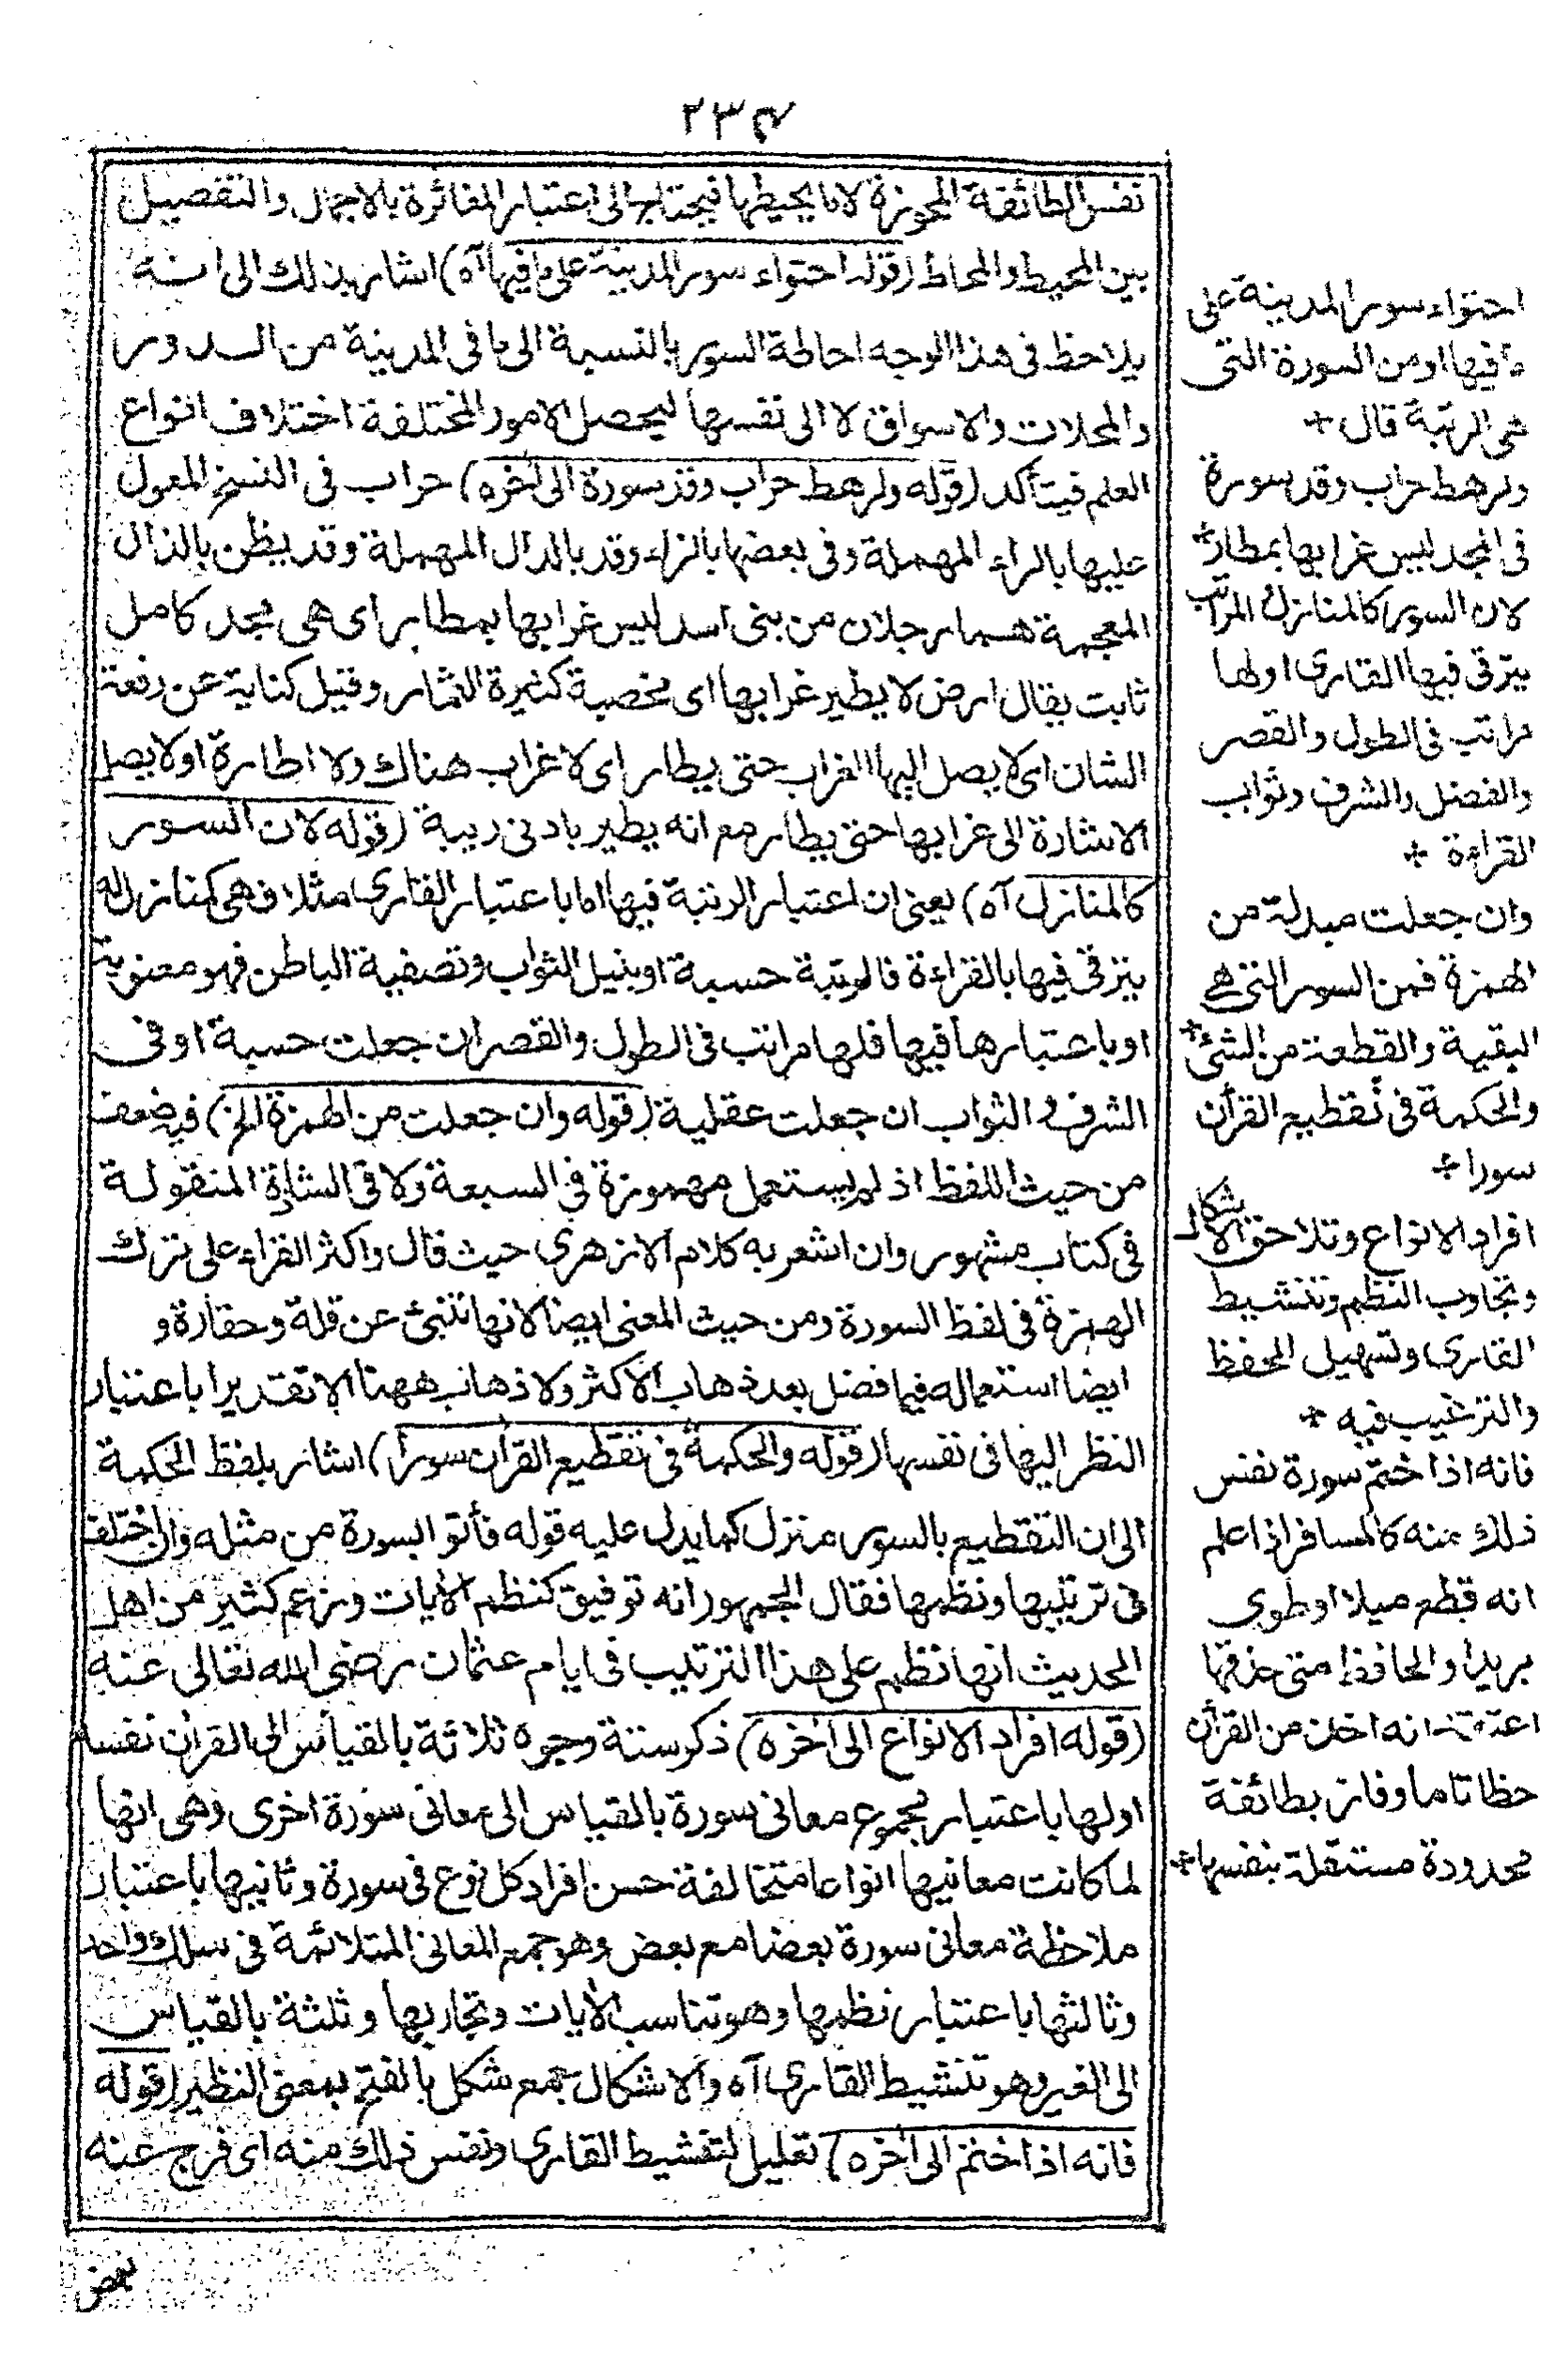 ٢٣٤
نفس الطائفة المحوزة لا ما يحيط بها فيحتاج الى اعتبار المغائرة بالاجمال والتفصيل
بين المحيط والمحاط (قوله احتواء سور المدينة على ما فيها آه) اشار بذلك الى انه
يلاحظ فى هذا الوجه احاطة السور بالنسبة الى ما فى المدينة من الدور
والمحلات والاسواق لا الى نفسها ليحصل الامور المختلفة اختلاف انواع
العلم فيتأكد (قوله ولرهط حراب وقد سورة الى آخره) حراب فى النسخ المعول
عليها بالراء المهملة وفى بعضها بالزاء وقد بالدال المهملة وقد يظن بالذال
المعجمة هما رجلان من بنى اسد ليس غرابها بمطار اى هى مجد كامل
ثابت يقال ارض لا يطير غرابها اى مخصبة كثيرة الثمار وقيل كناية عن رفعة
الشان اى لا يصل اليها الغراب حتى يطار اى لا غراب هناك ولا اطارة او لا يصل
الاشارة الى غرابها حتى يطار مع انه يطير بادنى ريبة (قوله لان السور
كالمنازل آه) يعنى ان اعتبار الرتبة فيها اما باعتبار القارى مثلا فهى كمنازل له
يترقى فيها بالقراءة فالرتبة حسية او بنيل الثواب وتصفية الباطن فهو معنوية
او باعتبارها فيها فلها مراتب فى الطول والقصر ان جعلت حسية او فى
الشرف والثواب ان جعلت عقلية (قوله وان جعلت من الهمزة الخ) فيه ضعف
من حيث اللفظ اذ لم يستعمل مهموزة فى السبعة ولا فى الشاذة المنقولة
فى كتاب مشهور وان اشعر به كلام الازهرى حيث قال واكثر القراء على ترك
الهمزة فى لفظ السورة ومن حيث المعنى ايضا لانها تنبئ عن قلة وحقارة و
ايضا استعماله فيما فضل بعد ذهاب الاكثر ولا ذهاب ههنا الا تقديرا باعتبار
النظر اليها فى نفسها (قوله والحكمة فى تقطيع القرآن سورا) اشار بلفظ الحكمة
الى ان التقطيع بالسور منزل كما يدل عليه قوله فأتوا بسورة من مثله وان اختلف
فى ترتيبها ونظمها فقال الجمهور انه توفيق كنظم الآيات وزعم كثير من اهل
الحديث انها نظم على هذا الترتيب فى ايام عثمان رضى الله تعالى عنه
(قوله افراد الانواع الى آخره) ذكر ستة وجوه ثلاثة بالقياس الى القرآن نفسه
اولها باعتبار مجموع معانى سورة بالقياس الى معانى سورة اخرى وهى انها
لما كانت معانيها انواعا متخالفة حسن افراد كل نوع فى سورة وثانيها باعتبار
ملاحظة معانى سورة بعضا مع بعض وهو جمع المعانى المتلائمة فى سلك واحد
وثالثها باعتبار نظمها وهو تناسب الآيات وتجاوبها وثلثة بالقياس
الى الغير وهو تنشيط القارى آه والاشكال جمع شكل بالفتح بمعنى النظير (قوله
فانه اذا ختم الى آخره) تعليل لتنشيط القارى ونفس ذلك منه اى فرج عنه
بعض
احتواء سور المدينة على
ما فيها او من السورة التى
هى الرتبة قال
ولرهط حراب وقد سورة
فى المجد ليس غرابها بمطار
لان السور كالمنازل والمراتب
يترقى فيها القارى او لها
مراتب فى الطول والقصر
والفضل والشرف وثواب
القراءة
وان جعلت مبدلة من
الهمزة فمن السور التى هى
البقية والقطعة من الشئ
والحكمة فى تقطيع القرآن
سورا
افراد الانواع وتلاحق الاشكال
وتجاوب النظم وتنشيط
القارى وتسهيل الحفظ
والترغيب فيه
فانه اذا ختم سورة نفس
ذلك منه كالمسافر اذا علم
انه قطع ميلا او طوى
بريدا والحافظ متى حذقها
اعتقد انه اخذ من القرآن
حظا تاما وفاز بطائفة
محدودة مستقلة بنفسها